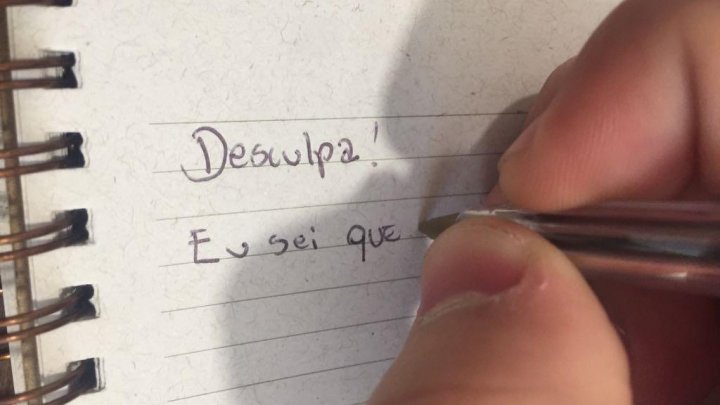 Desculpa!
Eu sei que